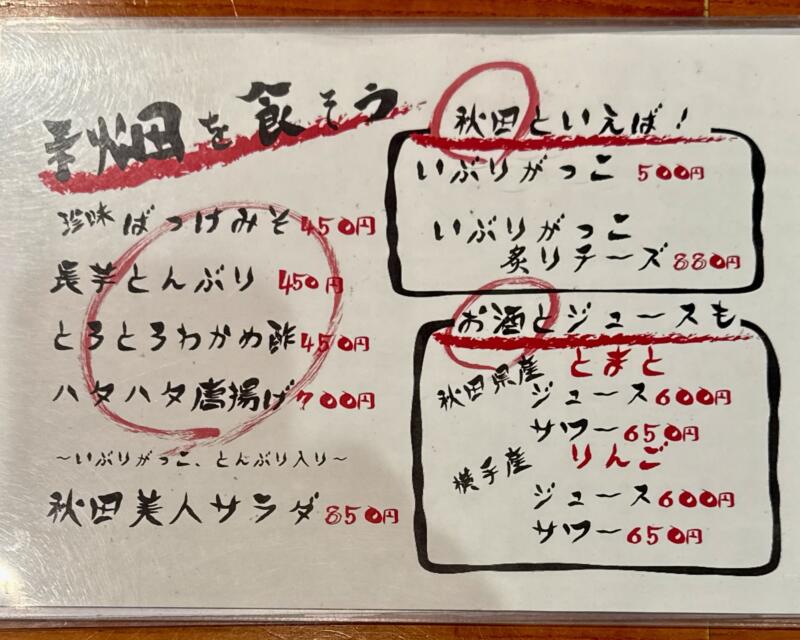 秋田を食そう
珍味ばっけみそ450円
長芋とんぶり 450円
とろとろわかめ酢450円
ハタハタ唐揚げ700円
〜いぶりがっこ、とんぶり入り〜
秋田美人サラダ850円
秋田といえば!
いぶりがっこ 500円
いぶりがっこ
炙りチーズ880円
お酒とジュースも
秋田県産 とまと
ジュース600円
サワー650円
横手産 りんご
ジュース600円
サワー650円